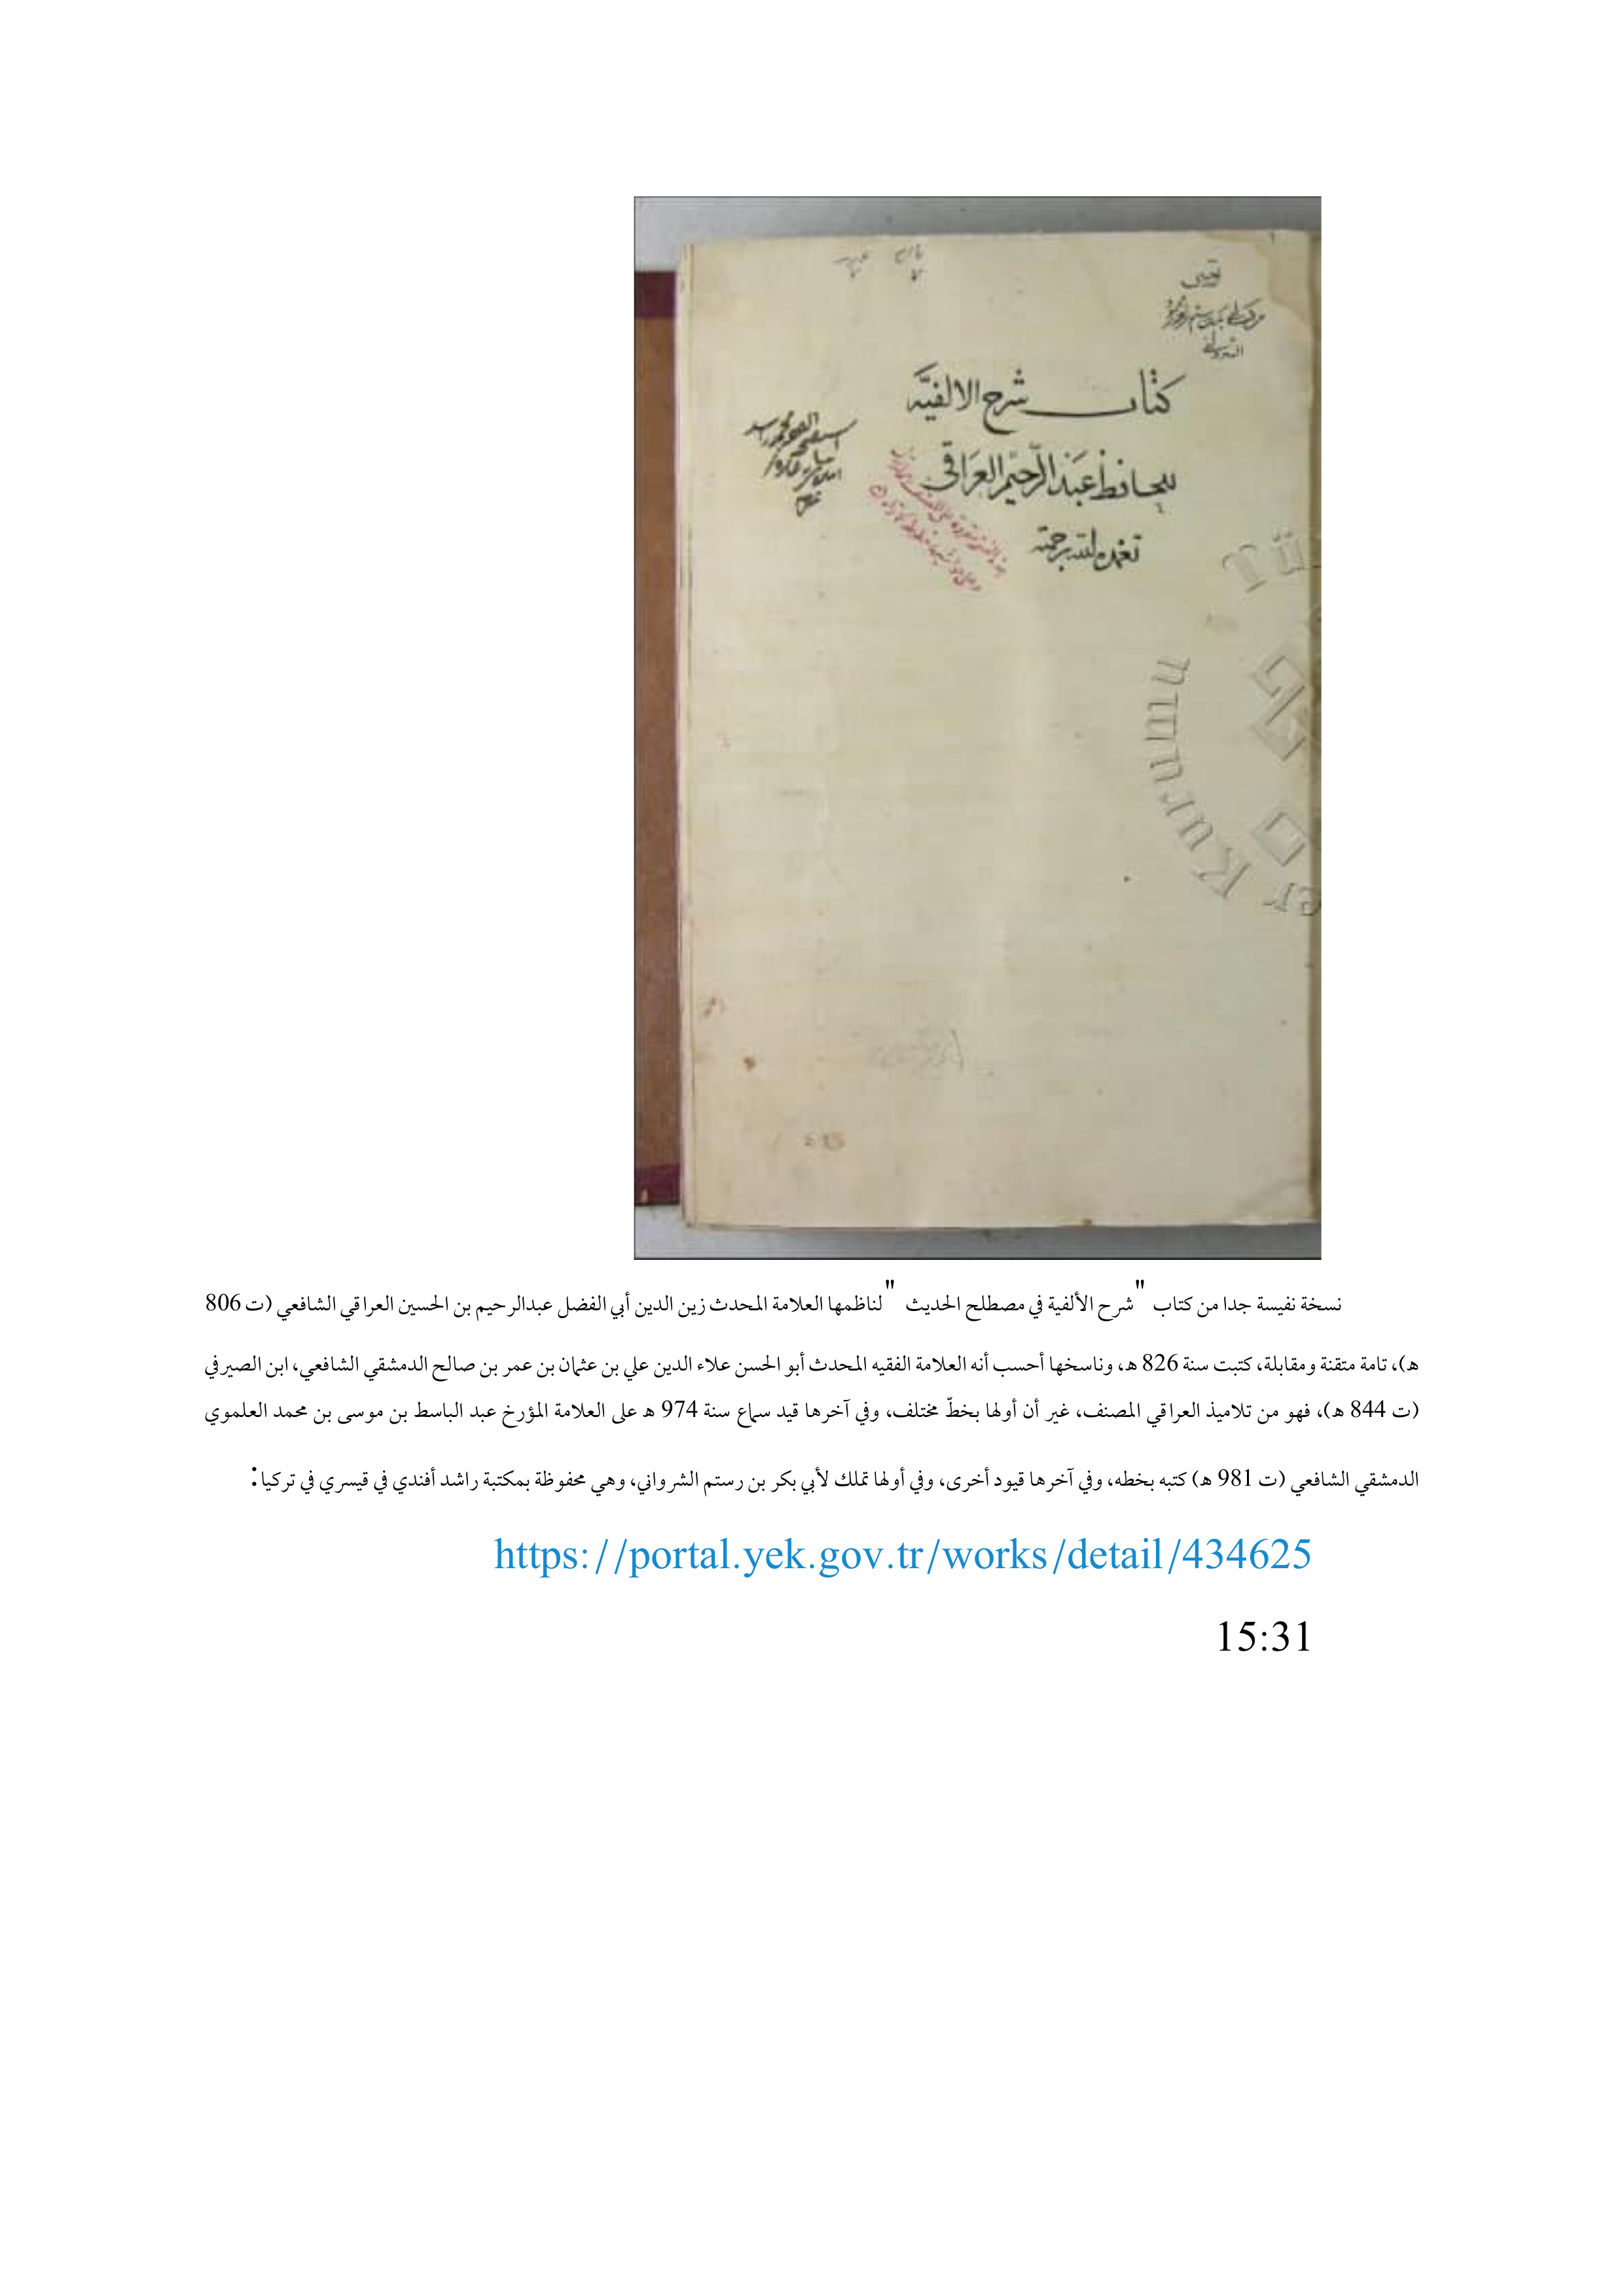 كتاب شرح الالفيَّه
للحافظ عَبْد الرَّحيم العِرَاقي
تغمده الله برحمته
nü
numuruK re
نسخة نفيسة جدا من كتاب "شرح الألفية في مصطلح الحديث" لناظمها العلامة المحدث زين الدين أبي الفضل عبدالرحيم بن الحسين العراقي الشافعي (ت 806
هـ)، تامة متقنة ومقابلة، كتبت سنة 826 هـ، وناسخها أحسب أنه العلامة الفقيه المحدث أبو الحسن علاء الدين علي بن عثمان بن عمر بن صالح الدمشقي الشافعي، ابن الصيرفي
(ت 844 هـ)، فهو من تلاميذ العراقي المصنف، غير أن أولها بخطّ مختلف، وفي آخرها قيد سماع سنة 974 هـ على العلامة المؤرخ عبد الباسط بن موسى بن محمد العلموي
الدمشقي الشافعي (ت 981 هـ) كتبه بخطه، وفي آخرها قيود أخرى، وفي أولها تملك لأبي بكر بن رستم الشرواني، وهي محفوظة بمكتبة راشد أفندي في قيسري في تركيا:
https://portal.yek.gov.tr/works/detail/434625
15:31